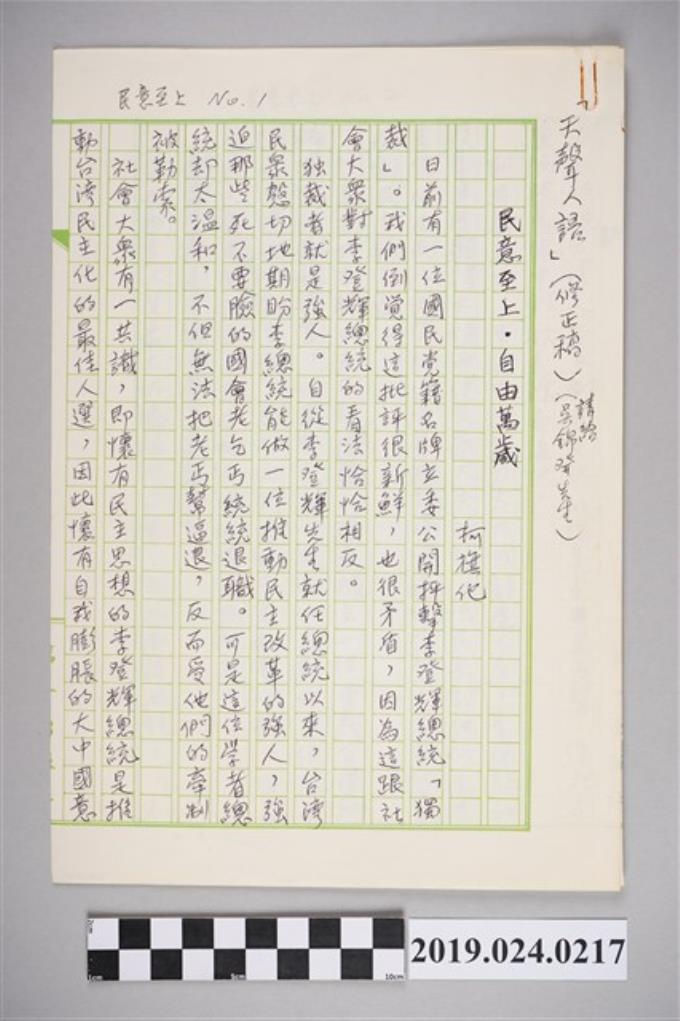 民意至上 No.1
「天聲人語」(修正稿)(請給吳錦發先生)
民意至上·自由萬歲
柯旗化
日前有一位國民党籍名牌立委公開抨擊李登輝總統「獨
裁」。我們倒覚得這批評很新鮮，也很矛盾，因為這跟社
會大衆對李登輝總統的看法恰恰相反。
独裁者就是強人。自從李登輝先生就任總統以來，台湾
民衆慇切地期盼李總統能做一位推動民主改革的強人，強
迫那些死不要臉的國會老乞丐統統退職。可是這位学者總
統却太温和，不但無法把老丐幫逼退，反而受他們的牽制
被勒索。
社會大衆有一共識，即懷有民主思想的李登輝總統是推
動台湾民主化的最佳人選，因此懷有自我膨脹的大中國意
2019.024.0217
1cm
5cm
10cm